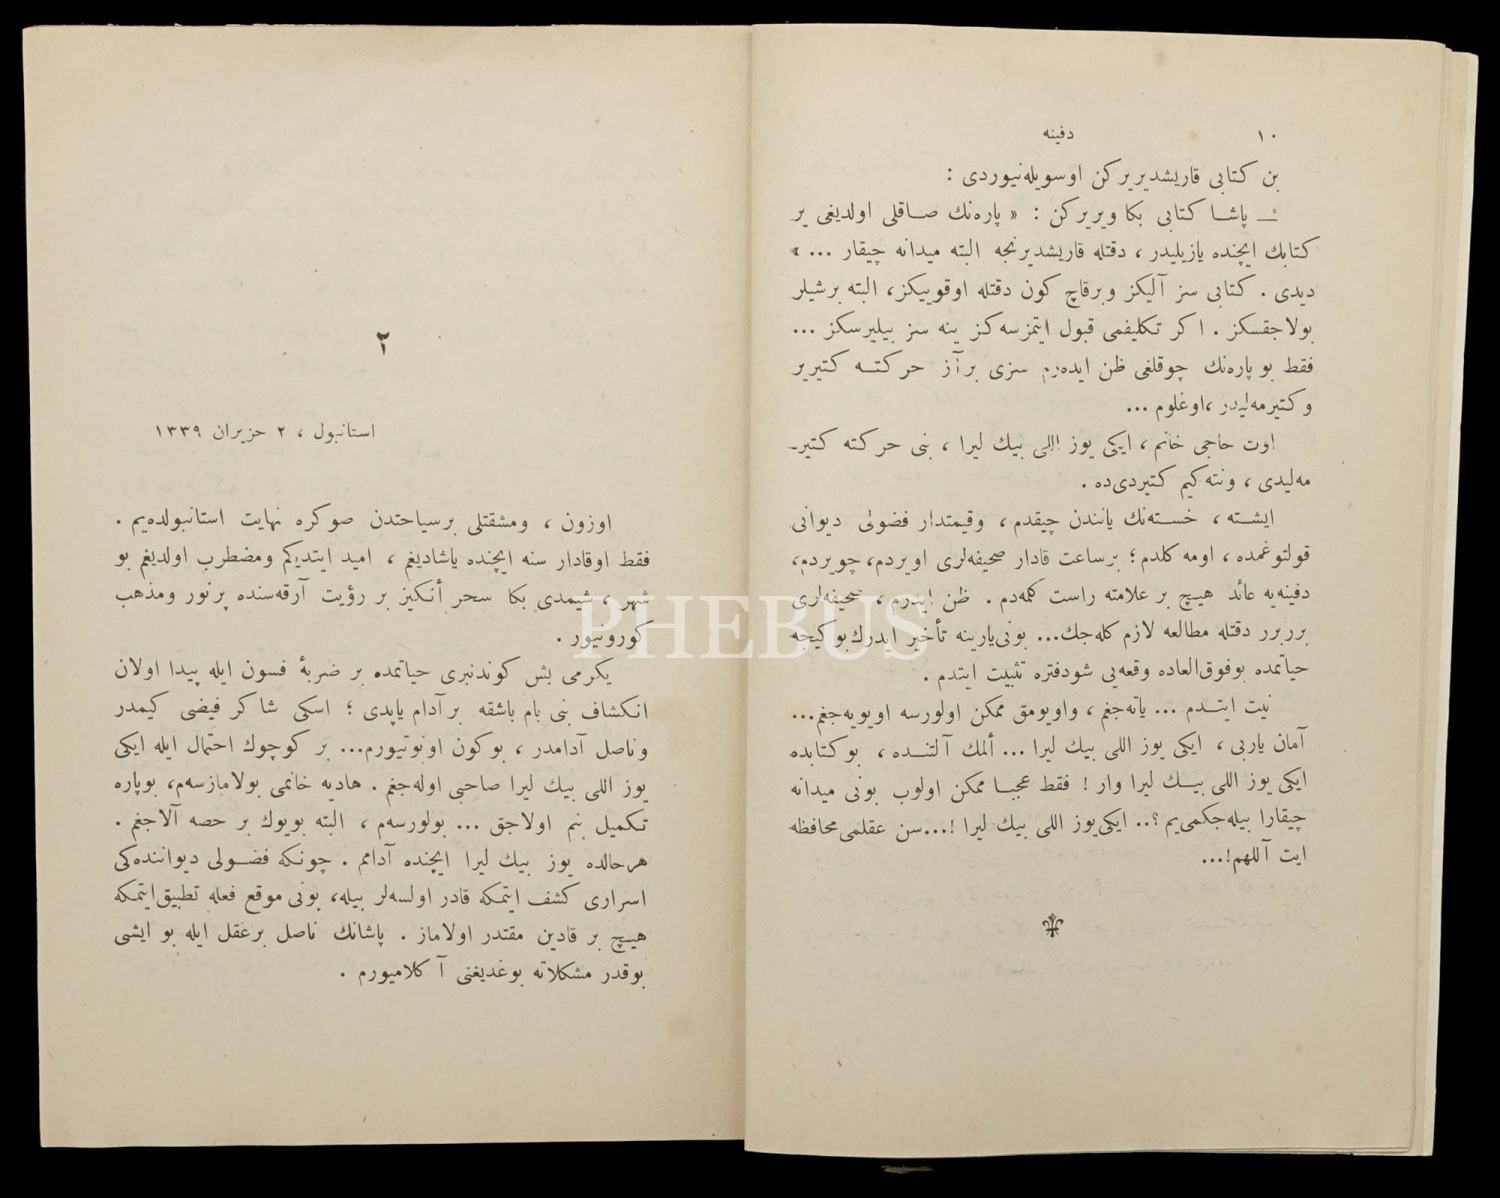 ١٠
دفينه
بن كتابى قاريشديريركن اوسويله‌نيوردى :
— پاشا كتابى بكا ويريركن : « پاره‌نك صاقلى اولديغى ير
كتابك ايچنده يازيليدر ، دقتله قاريشديرنجه البته ميدانه چيقار ... »
ديدى . كتابى سز آليكز وبرقاچ كون دقتله اوقوييكز، البته برشيلر
بولاجقسكز . اكر تكليفمى قبول ايتمزسه‌كز ينه سز بيليرسكز ...
فقط بو پاره‌نك چوقلغى ظن ايده‌رم سزى برآز حركتـه كتيرير
وكتيرمه‌ليدر ،اوغلوم ...
اوت حاجى خانم ، ايكى يوز اللى بيك ليرا ، بنى حركته كتير-
مه‌ليدى ، ونته‌كيم كتيردى‌ده .
ايشـته ، خسـته‌نك يانندن چيقدم ، وقيمتدار فضولى ديوانى
قولتوغمده ، اومه كلدم ؛ برساعت قادار صحيفه‌لرى اويردم، چويردم،
دفينه‌يه عائد هيـچ بر علامته راست كلمه‌دم . ظن ايدرم ، صحيفه‌لرى
بررر دقتله مطالعه لازم كله‌جك... بونى‌يارينه تأخير ايدرك‌بوكيجه
حياتمده بوفوق‌العاده وقعه‌يى شودفتره تثبيت ايتدم .
نيت ايتـدم ... ياته‌جغم ، واويومق ممكن اولورسه اويويه‌جغم...
آمان ياربى ، ايكى يوز اللى بيك ليرا ... ألمك آلتنـده ، بوكتابده
ايكى يوز اللى بيـك ليرا وار ! فقط عجبـا ممكن اولوب بونى ميدانه
چيقارا بيله‌جكمى‌يم ؟.. ايكى‌يوز اللى بيك ليرا !...سن عقلمى‌محافظه
ايت آللهم!...
٢
استانبول ، ٢ حزيران ١٣٣٩
اوزون ، ومشقتلى برسياحتدن صوكره نهايت استانبولده‌يم .
فقط اوقادار سنه ايچنده ياشاديغم ، اميد ايتديكم ومضطرب اولديغم بو
شهر ، شيمدى بكا سحر أنكيز بر رؤيت آرقه‌سنده پرنور ومذهب
كورونيور .
يكرمى بش كوندنبرى حياتمده بر ضربۀ فسون ايله پيدا اولان
انكشاف بنى بام باشقه برآدام ياپدى ؛ اسكى شاكر فيضى كيمدر
وناصل آدامدر ، بوكون اونوتيورم... بر كوچوك احتمال ايله ايكى
يوز اللى بيك ليرا صاحبى اوله‌جغم . هاديه خانمى بولامازسه‌م، بوپاره
تكميل بنم اولاجق ... بولورسه‌م ، البته بويوك بر حصه آلاجغم .
هرحالده يوز بيك ليرا ايچنده آدامم . چونكه فضـولى ديواننده‌كى
اسرارى كشف ايتمكه قادر اولسه‌لر بيله، بونى موقع فعله تطبيق‌ايتمكه
هيـچ بر قادين مقتدر اولاماز . پاشانك ناصل برعقل ايله بو ايشى
بوقدر مشكلاته بوغديغنى آكلاميورم .
PHEBUS